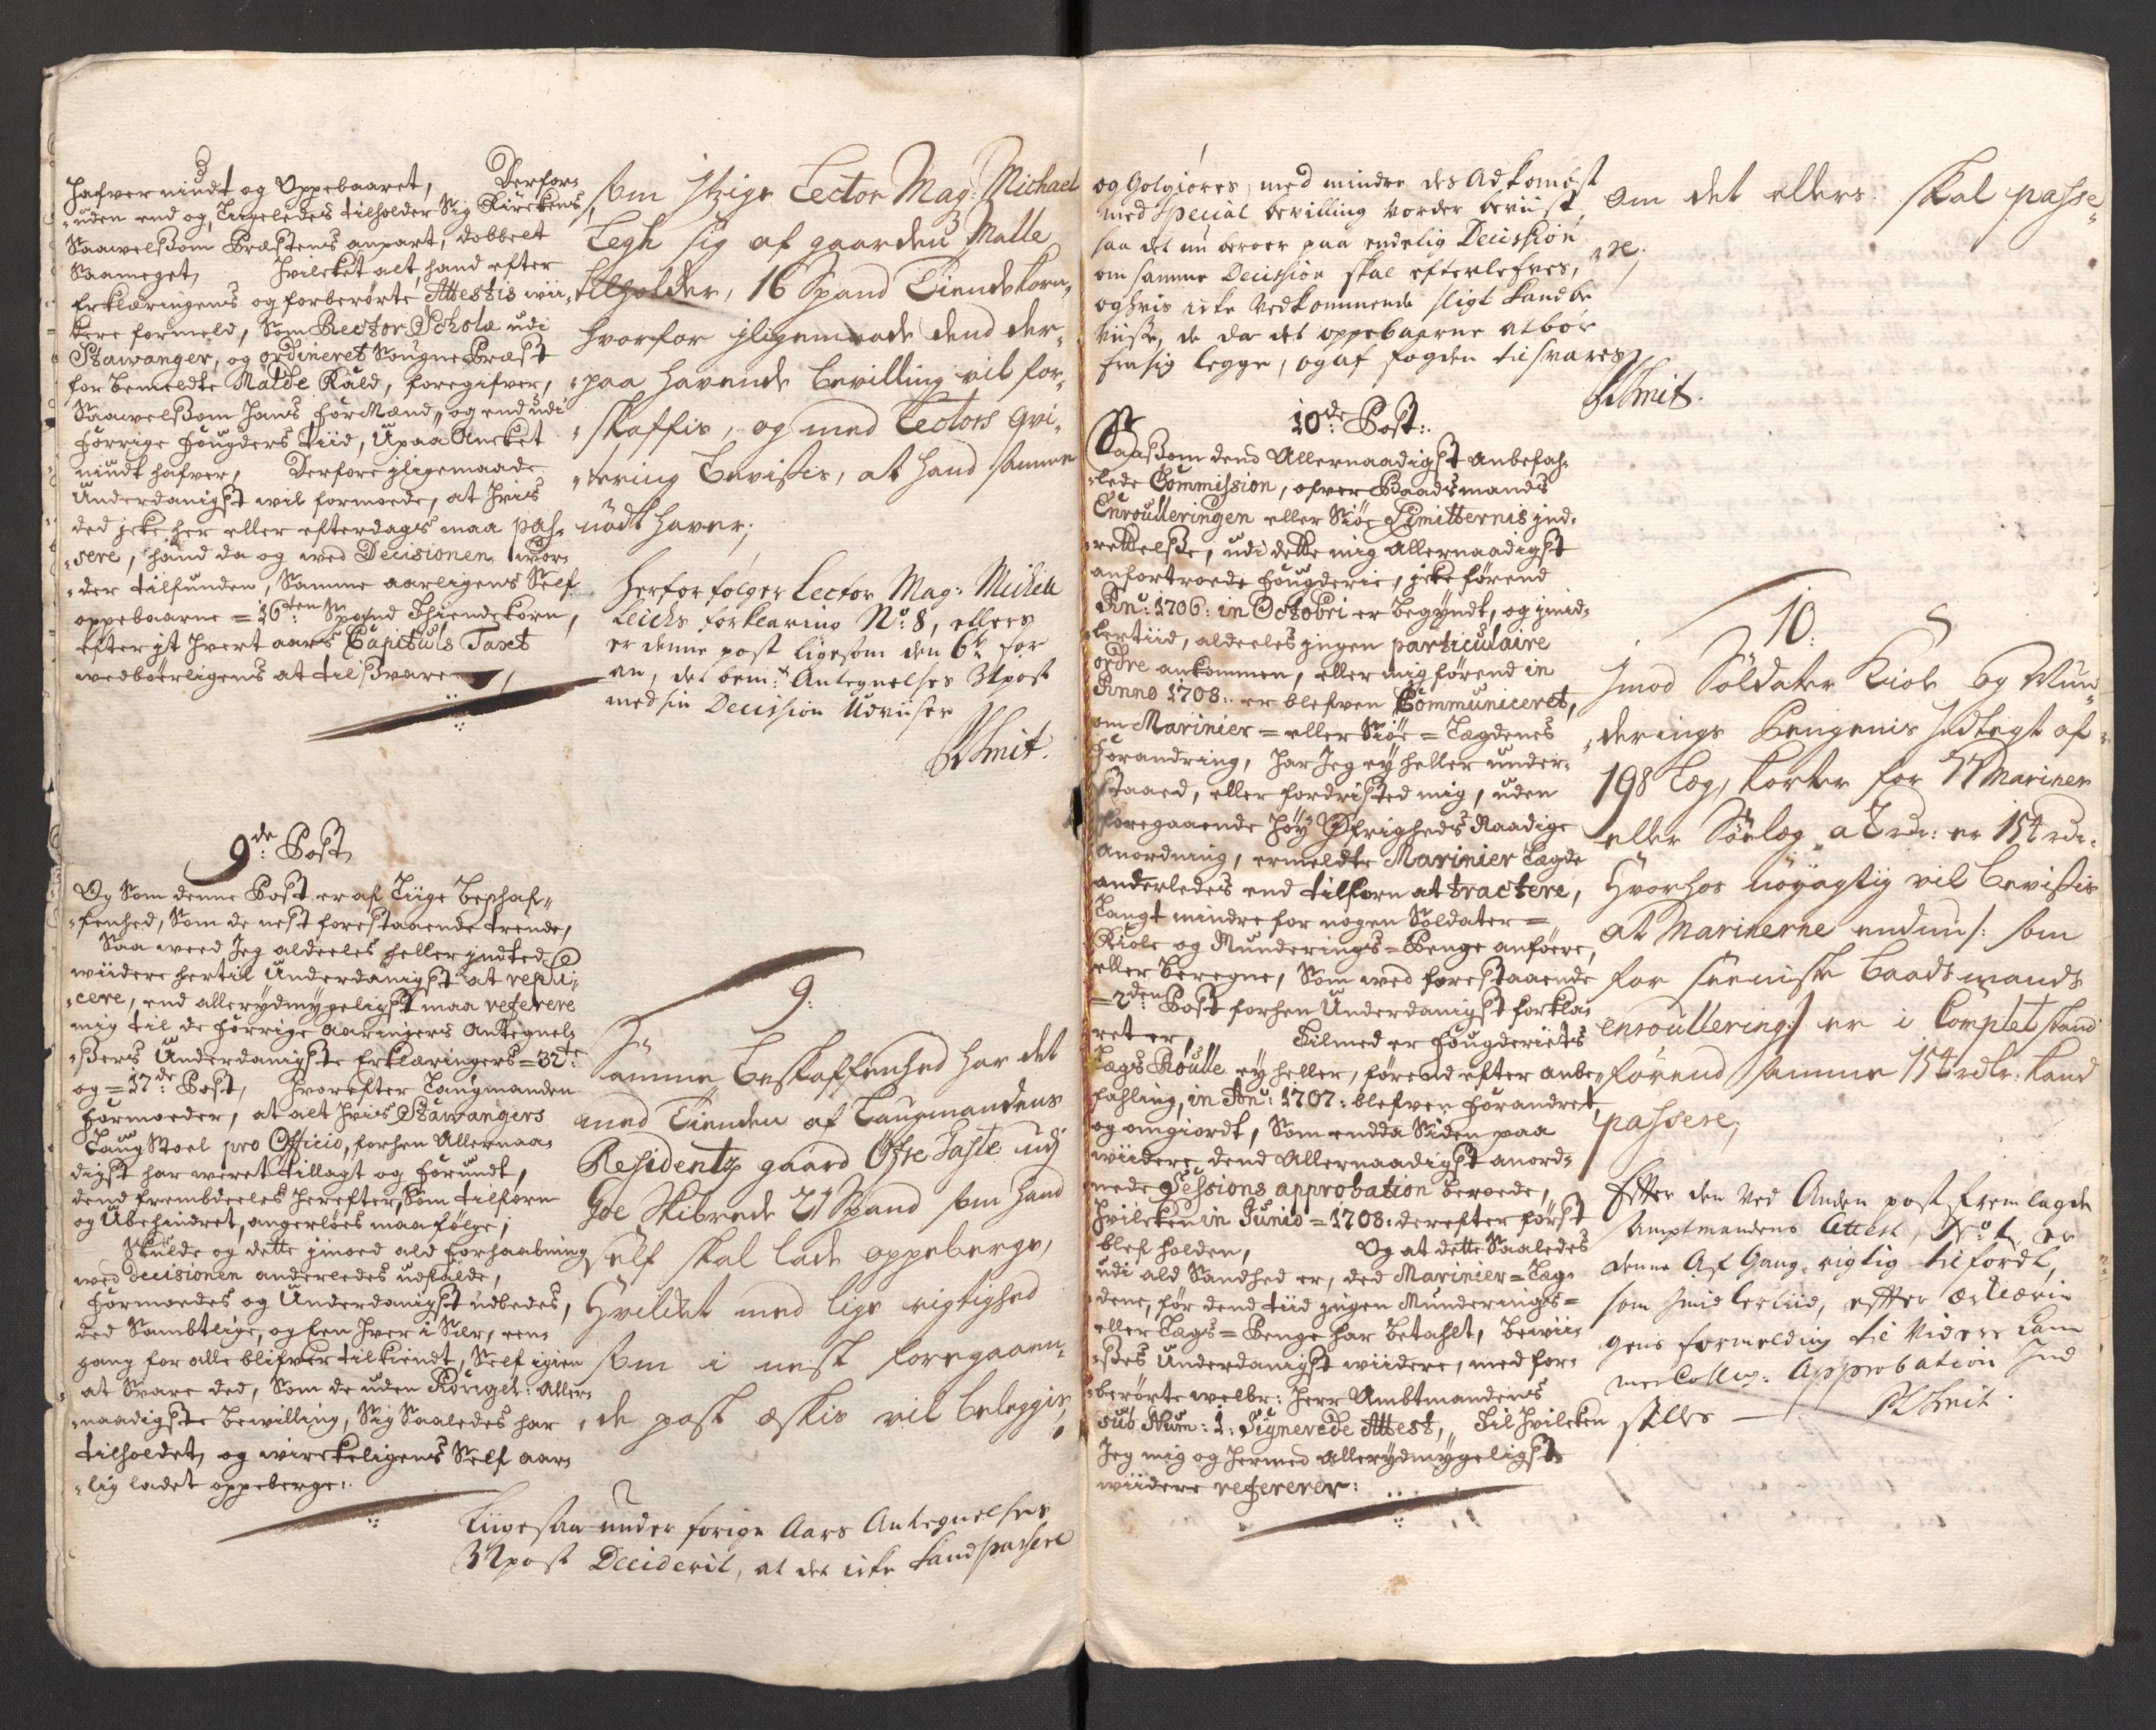 hafver niudt og Oppebaaret, Derfor-
-uden end og, Ligeledes tilholder Sig Kirckens
Saavelsom Præstens anpart, dobbelt
Saameget, Hvilcket alt, hand efter
Erklæringens og forberørte Attestis vii-
dere formeld, Som Rector Scholæ udi
Stawanger, og ordineret Sougne Præst
for bemeldte Malde Kald, foregifver,
Saavelsom hans ForMænd, og end udi
Forrige Fougders Tiid, Upaa Ancket
niudt hafver, Derfore jligemaade
Underdanigst vil formoede, at hvis
ded jcke her eller efterdags maa pas-
-sere, hand da og ved Decisionen vor-
-der tilfunden, Samme aarligens Self
oppebaarne = 16ten Spand Thiendekorn,
Efter jt hvert aars Capituls Taxt
vedbørligens at tilsvare
9de: Post,
Og Som denne Post er af Liige beskaf-
-fenhed, Som de nest forestaaende trende,
Saa veed Jeg aldeeles heller jndted
viidere hertil Underdanigst at repli-
-cere, end allerydmygeligst maa referere
mig til de forrige Aaringers Antegnel-
-sers Underdanigste Erklæringers = 32te:
og = 17de: Post, hvorefter Laugmanden
Formoeder, at alt hvis Stawangers
Laug Stoel pro Officio, forhen Allernaa-
digst har veret tillagt og forundt,
dend frembdeeles herefter, Som tilforn
og Ubehindret, angerløes maa følge;
Skulde og dette jmoed ald forhaabning
ved Decisionen anderledes udfalde,
Formoedes og Underdanigst udbedes,
ded Sambtlige, og Een hver i Sær, een-
gang for alle blifver tilkiendt, Self igien
at Svare ded, Som de uden Kongel: Aller-
-naadigste bevilling, Sig Saaledes har
tilholdet, og virckeligens Self aar-
-lig ladet oppeberge:.
som jtzige Lector Mag: Michael
Legh sig af gaarden Malle
tilholder, 16 Spand Tiendekorn,
hvorfor jligemaade dend der-
-paa havende bevilling vil for-
-skaffis, og med Lectors Qvi-
-tering bevisis, at hand samme
nødt haver;
Herfor følger Lector Mag: Michell
Leichs forklaring No. 8, ellers
er denne post ligesom den 6te for
an, det bem:te Antegnelses 31 post
med sin Decission Udviiser
Schmit.
9:
Samme beskaffenhed har det
med Tienden af Laugmandens
Residentz gaard Ofre Haste udj
Goe Skibrede 21 Spand som hand
self skal lade oppeberge,
Hvilchet med lige rigtighed
som i nest foregaaen-
-de post æskis vil beleggis;
Liigesaa under forige Aars Antegnelses
32 post Deciderit, at det icke kand passere
og Godgiøres, med mindre des Adkombst
med Special bevilling vorder beviist,
saa det nu beroer paa endelig Decission
om samme Decission skal efterlefves,
og hvis icke vedkommende sligt kand be
viise, de da det oppebaarne at bør
fra sig legge, og af fogden tilsvares
Schmit.
10de: Post:.
Saasom dend Allernaadigst anbefah-
-lede Commission, ofver Baadsmands
Enroulleringen eller Siøe Limitternis jnd-
-rettelse, udi dette mig Allernaadigst
anfortroede Fougderie, jcke førend
Ano: 1706: in Octobri er begyndt, og jmid-
lertiid, aldeeles jngen particulaire
ordre ankommen, eller mig førend in
Anno 1708:. er blefven Communiceret,
om Marinier = eller Siøe = Lægdenes
Forandring, har Jeg ey heller under-
staaed, eller fordristed mig, uden
foregaaende høy Øfrigheds Naadige
Anordning, ermeldte Marinier Lægde
anderledes end tilforn at tractere,
langt mindre for nogen Soldater =
Kiole og Munderings = Penge anføre,
eller beregne, Som ved forestaaende
= 2den: Post forhen Underdanigst forkla-
ret er, Tilmed er Fougderiets
Lægs Roulle ey heller, førend efter anbe-
fahling, in Ano: 1707: blefven forandret,
og omgiordt, Som endda Siden paa
viidere dend Allernaadigst anord-
nede Sessions approbation beroede,
hvilcken in Junio = 1708: derefter først
blef holden, Og at dette Saaledes
udi ald Sandhed er, ded Marinier = Læg-
dene, før dend tiid jngen Munderings =
eller Lægs = Penge har betahlt, bevii-
-ses Underdanigst viidere, med for-
-berørte velbr: Herr Ambtmandens
sub Num: 1: Signerede Attest, Til hvilcken
Jeg mig og hermed allerydmygeligst
viidere refererer:
om det ellers skal passe-
-re;
10:
Jmod Soldater Kiole og Mun-
-derings Pengenis Indtegt af
198 Læg, korter for 77 Mariner
eller Søelæg a 2 rdr: er 154 rdr:
Hvorhos nøyagtig vil bevisis
at Marinerne endnu /: som
for sienniste baadsmands
enroullering :/ er i Complet stand
førend samme 154 rdlr: kand
passere;
Efter den ved Anden post fremlagde
Amptmandens Attest, No. 1, er
denne Afgang rigtig tilfordt,
som Jmidlertiid, effter Ærklærin
gens formelding til videre Cam
mer Colleg: Approbation Ind
stilles — Schmit.